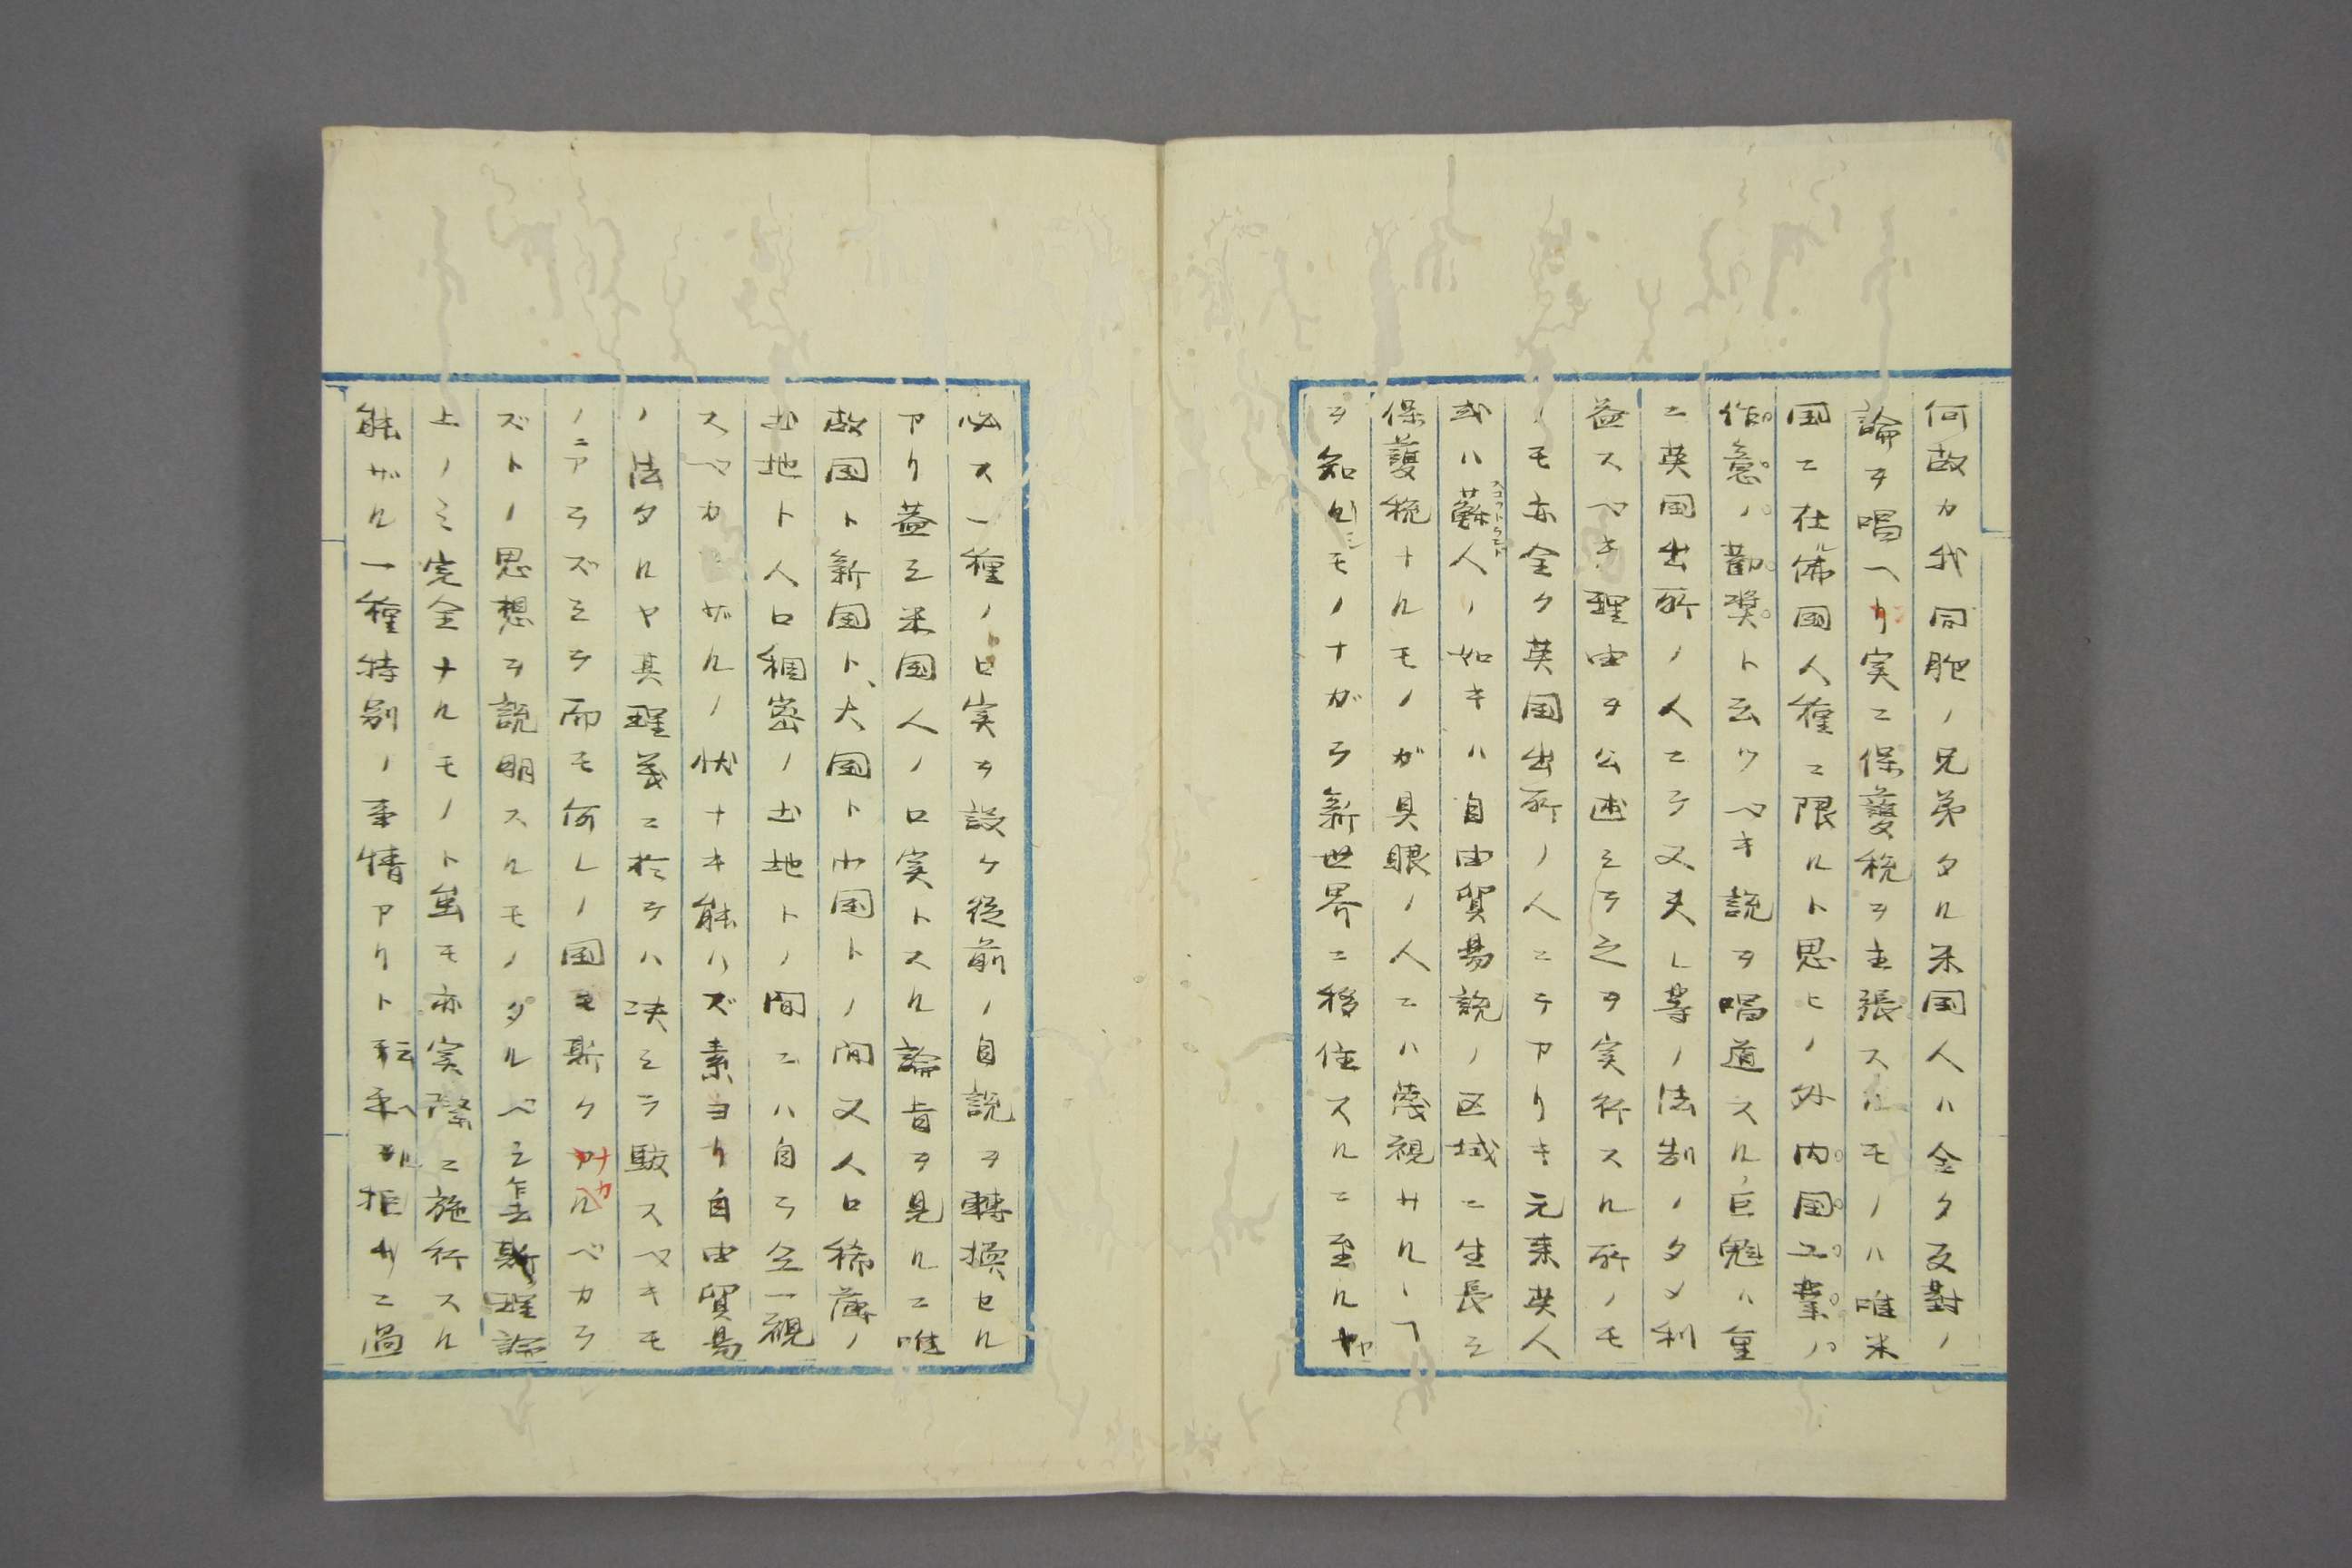 何故カ我同胞ノ兄弟タル米国人ハ全タク反對ノ
論ヲ唱ヘリ実ニ保護税ヲ主張スルモノハ唯米
国ニ在ル佛国人種ニ限ルト思ヒノ外内国工業ノ
作意ノ勸奬ト云ツベキ説ヲ唱道スル巨魁ハ重
ニ英国出所ノ人ニテ又夫レ等ノ法制ノタメ利
益スベキ理由ヲ公述シテ之ヲ実行スル所ノモ
ノモ亦全ク英国出所ノ人ニテアリキ元来英人
或ハ蘇人ノ如キハ自由貿易説ノ区域ニ生長シ
保護税ナルモノガ具眼ノ人ニハ蔑視サルヽヿ
ヲ知ルモノナガラ新世界ニ移住スルニ至ルヤ
必ス一種ノ口実ヲ設ケ従前ノ自説ヲ轉換セル
アリ蓋シ米国人ノ口実トスル論旨ヲ見ルニ唯
故国ト新国ト、大国ト小国トノ間又人口稀薄ノ
土地ト人口稠密ノ土地トノ間ニハ自ラ仝一視
スベカラザルノ状ナキ能ハズ素ヨリ自由貿易
ノ法タルヤ其理義ニ於テハ决シテ駁スベキモ
ノニアラズシテ而モ何レノ国モ斯クナカルベカラ
ズトノ思想ヲ説明スルモノタルベシ乍去斯理論
上ノミ完全ナルモノト虽モ亦実際ニ施行スル
能ザル一種特別ノ事情アリト転